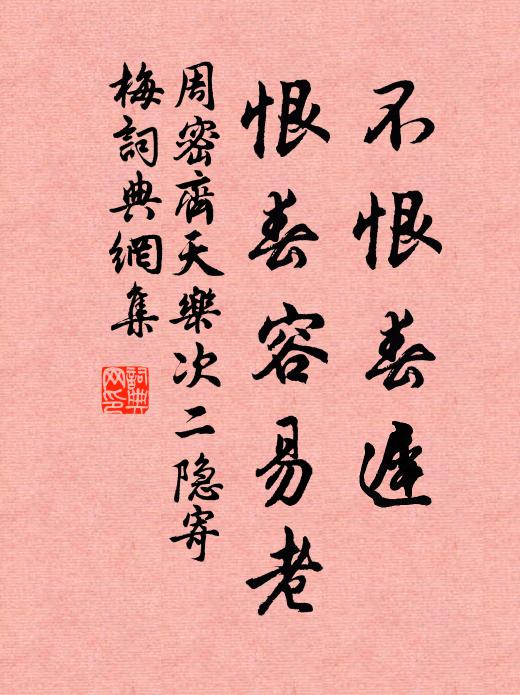 不恨春遲
恨春容易老
周密齊天樂次二隐寄
梅詞典網集
詞典網印